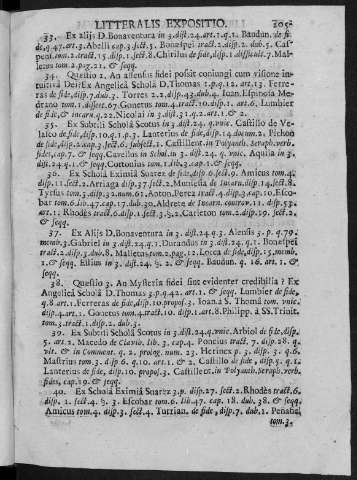 LITTERALIS EXPOSITIO.
33. Ex alijs D. Bonaventura in 3. dist. 24. art. 1. q. 1. Baudun. de fi-
de, q. 47. art. 3. Abelli cap. 3. sect. 5. Bonæspei tract. 2. disp. 2. dub. 5. Cas-
pensi. tom. 2. tract. 15. disp. 1. sect. 8. Chirilus de fide, disp. 1. difficult. 7. Mal-
letus tom. 2. pag. 21. & seqq.
34. Quæstio 2. An assensus fidei possit coniungi cum visione in-
tuitiva Dei? Ex Angelicâ Scholâ D. Thomas 1. p. q. 12. art. 13. Ferre-
de fide, disp. 7. dub. 3. Torres 2. 2. disp. 43. dub. 4. Ioan. Espinosa Me-
drano tom. 1. dissert. 67. Gonetus tom. 4. tract. 10. disp. 1. art. 6. Lumbier
de fide, & incarn. q. 22. Nicolai in 3. dist. 31. q. 2. art. 1. & 2.
35. Ex Subtili Scholâ Scotus in 3. dist. 24. q. vnic. Castillo de Ve-
lasco de fide, disp. 10. q. 1. p. 3. Lanterius de fide, disp. 14. docum. 2. Pichon
de fide, disp. 2. cap. 3. sect. 6. subiect. 1. Castillent. in Polyanth. Seraph. verb.
fides, cap. 7. & seqq. Cavellus in Schol. in 3. dist. 24. q. vnic. Aquila in 3.
dist. 24. q. 1. & seqq. Cottonius tom. 1. lib. 3. cap. 1. & seqq.
36. Ex Scholâ Eximiâ Suarez de fide, disp. 6. sect. 9. Amicus tom. 4.
disp. 11. sect. 2. Arriaga disp. 27. sect. 2. Munießa de Incarn. disp. 14. sect. 8.
Tyrsus tom. 3. disp. 32. num. 61. Anton. Perez tract. 4. disp. 3. cap. 10. Esco-
bar tom. 6. lib. 47. cap. 17. dub. 30. Aldrete de Incarn. controv. 11. disp. 53.
art. 11. Rhodès tract. 6. disp. 1. sect. 3. §. 2. Carleton tom. 2. disp. 19. sect. 2.
& seqq.
37. Ex Alijs D. Bonaventura in 3. dist. 24. q. 3. Alensis 3. p. q. 79.
memb. 3. Gabriel in 3. dist. 24. q. 1. Durandus in 3. dist. 24. q. 1. Bonæspei
tract. 2. disp. 3. dub. 8. Malletus tom. 2. pag. 12. Locca de fide, disp. 15. memb.
1. & seqq. Estius in 3. dist. 24. §. 2. & seqq. Baudun. q. 16. art. 1. &
seqq.
38. Quæstio 3. An Mysteria fidei sint evidenter credibilia? Ex
Angelicâ Scholâ D. Thomas 2. 2. q. 42. art. 1. & seqq. Lumbier de fide,
q. 8. art. 1. Ferreras de fide, disp. 10. propos. 3. Ioan. à S. Thoma tom. vnic.
disp. 4. art. 1. Gonetus tom. 4. tract. 10. disp. 1. art. 8. Philipp. à SS. Trinit.
tom. 3. tract. 1. disp. 2. dub. 3.
39. Ex Subtili Scholâ Scotus in 3. dist. 24. q. vnic. Arbiol de fide, disp.
5. art. 2. Macedo de Clavib. lib. 3. cap. 4. Poncius tract. 7. disp. 28. q.
vlt. & in Comment. q. 2. prolog. num. 23. Herincx p. 3. disp. 3. q. 6.
Mastrius tom. 3. disp. 6. q. 10. art. 1. & 2. Castillo de fide, disp. 5. q. 1.
Lanterius de fide, disp. 10. propos. 3. Castillent. in Polyanth. Seraph. verb.
fides, cap. 19. & seqq.
40. Ex Scholâ Eximiâ Suarez 3. p. disp. 27. sect. 2. Rhodès tract. 6.
disp. 1. sect. 4. §. 3. Escobar tom. 6. lib. 47. cap. 18. dub. 38. & seqq.
Amicus tom. 4. disp. 3. sect. 4. Turrian. de fide, disp. 7. dub. 1. Peñaba
tom. 3.